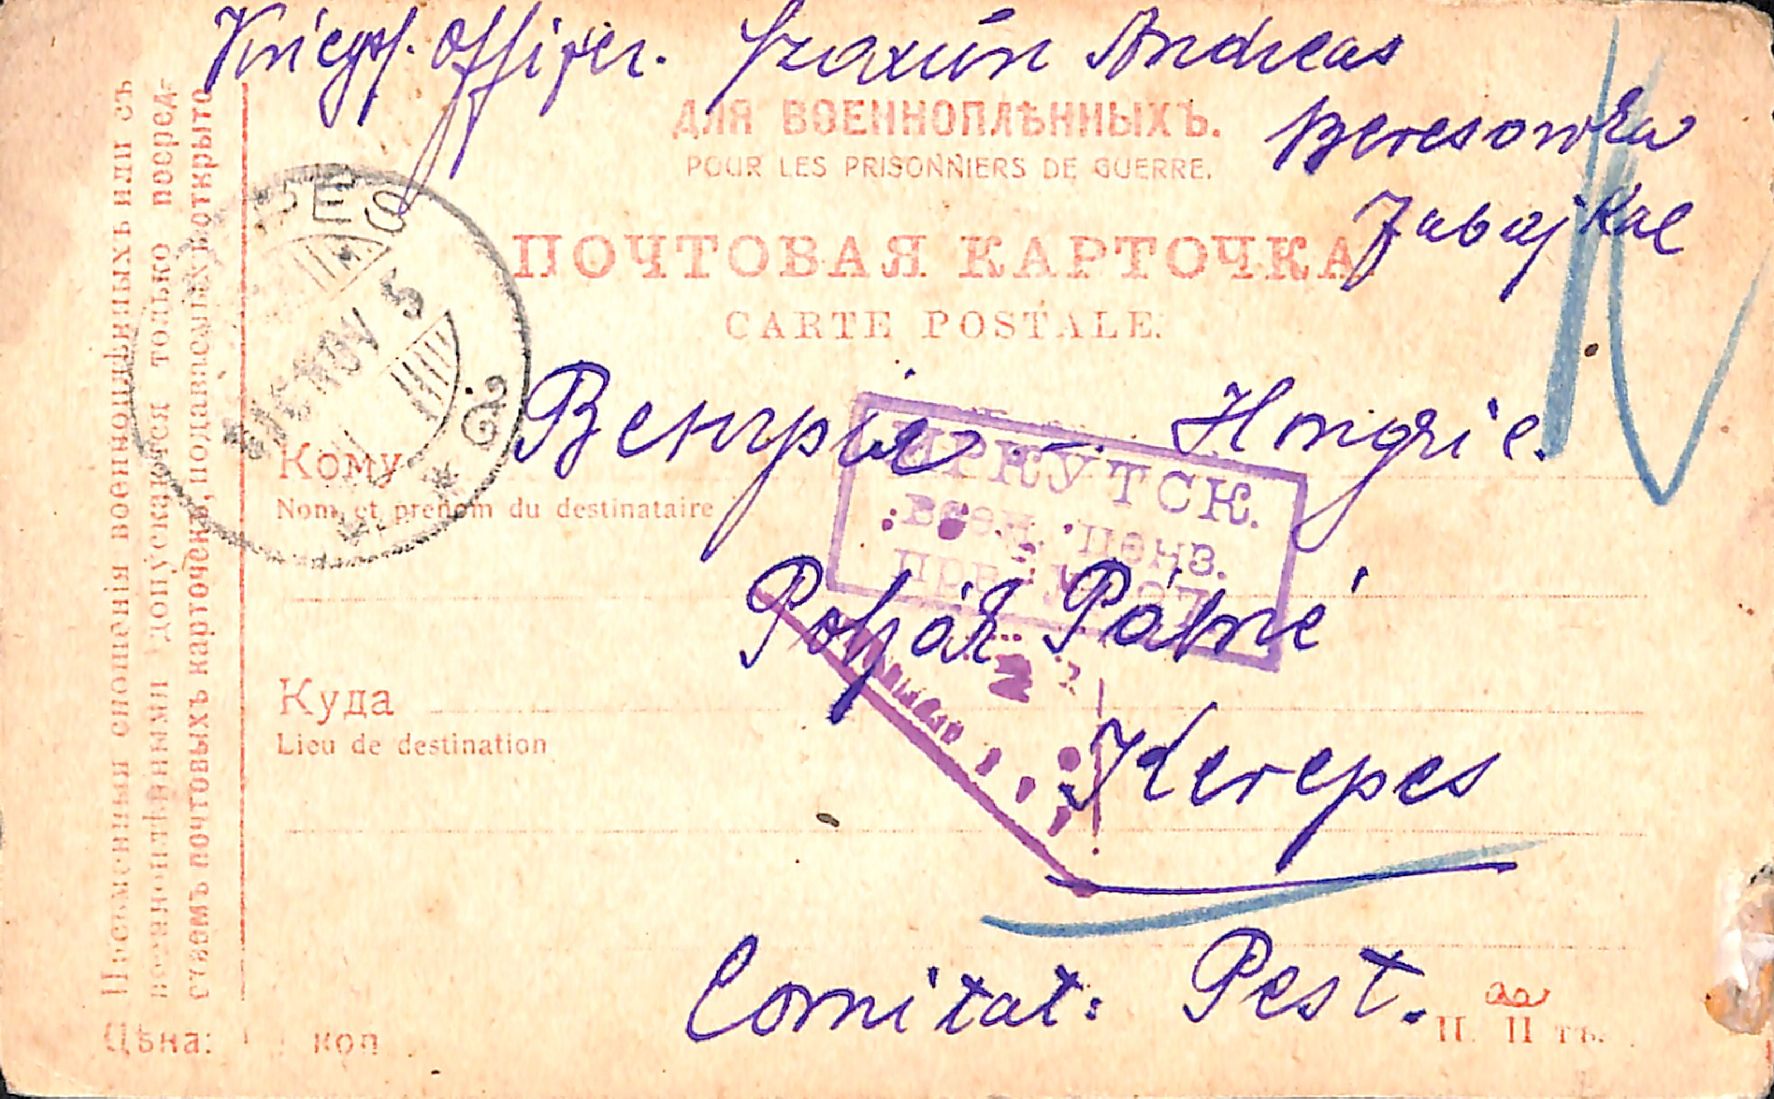 Kriegsf. Offizier. Andreas
Beresowka
Zabajkal
ДЛЯ ВОЕННОПЛѢННЫХЪ.
POUR LES PRISONNIERS DE GUERRE.
ПОЧТОВАЯ КАРТОЧКА
CARTE POSTALE.
Венгрія - Hongrie.
Кому
Nom et prenom du destinataire
ИРКУТСК.
воен. ценз.
Polyák Pálné
Куда
Lieu de destination
Kerepes
Comitat: Pest.
Цѣна: коп
Письменныя сношенія военноплѣнныхъ или съ
военноплѣнными допускаются только посред-
ствомъ почтовыхъ карточекъ, подаваемыхъ открыто
NOV 5